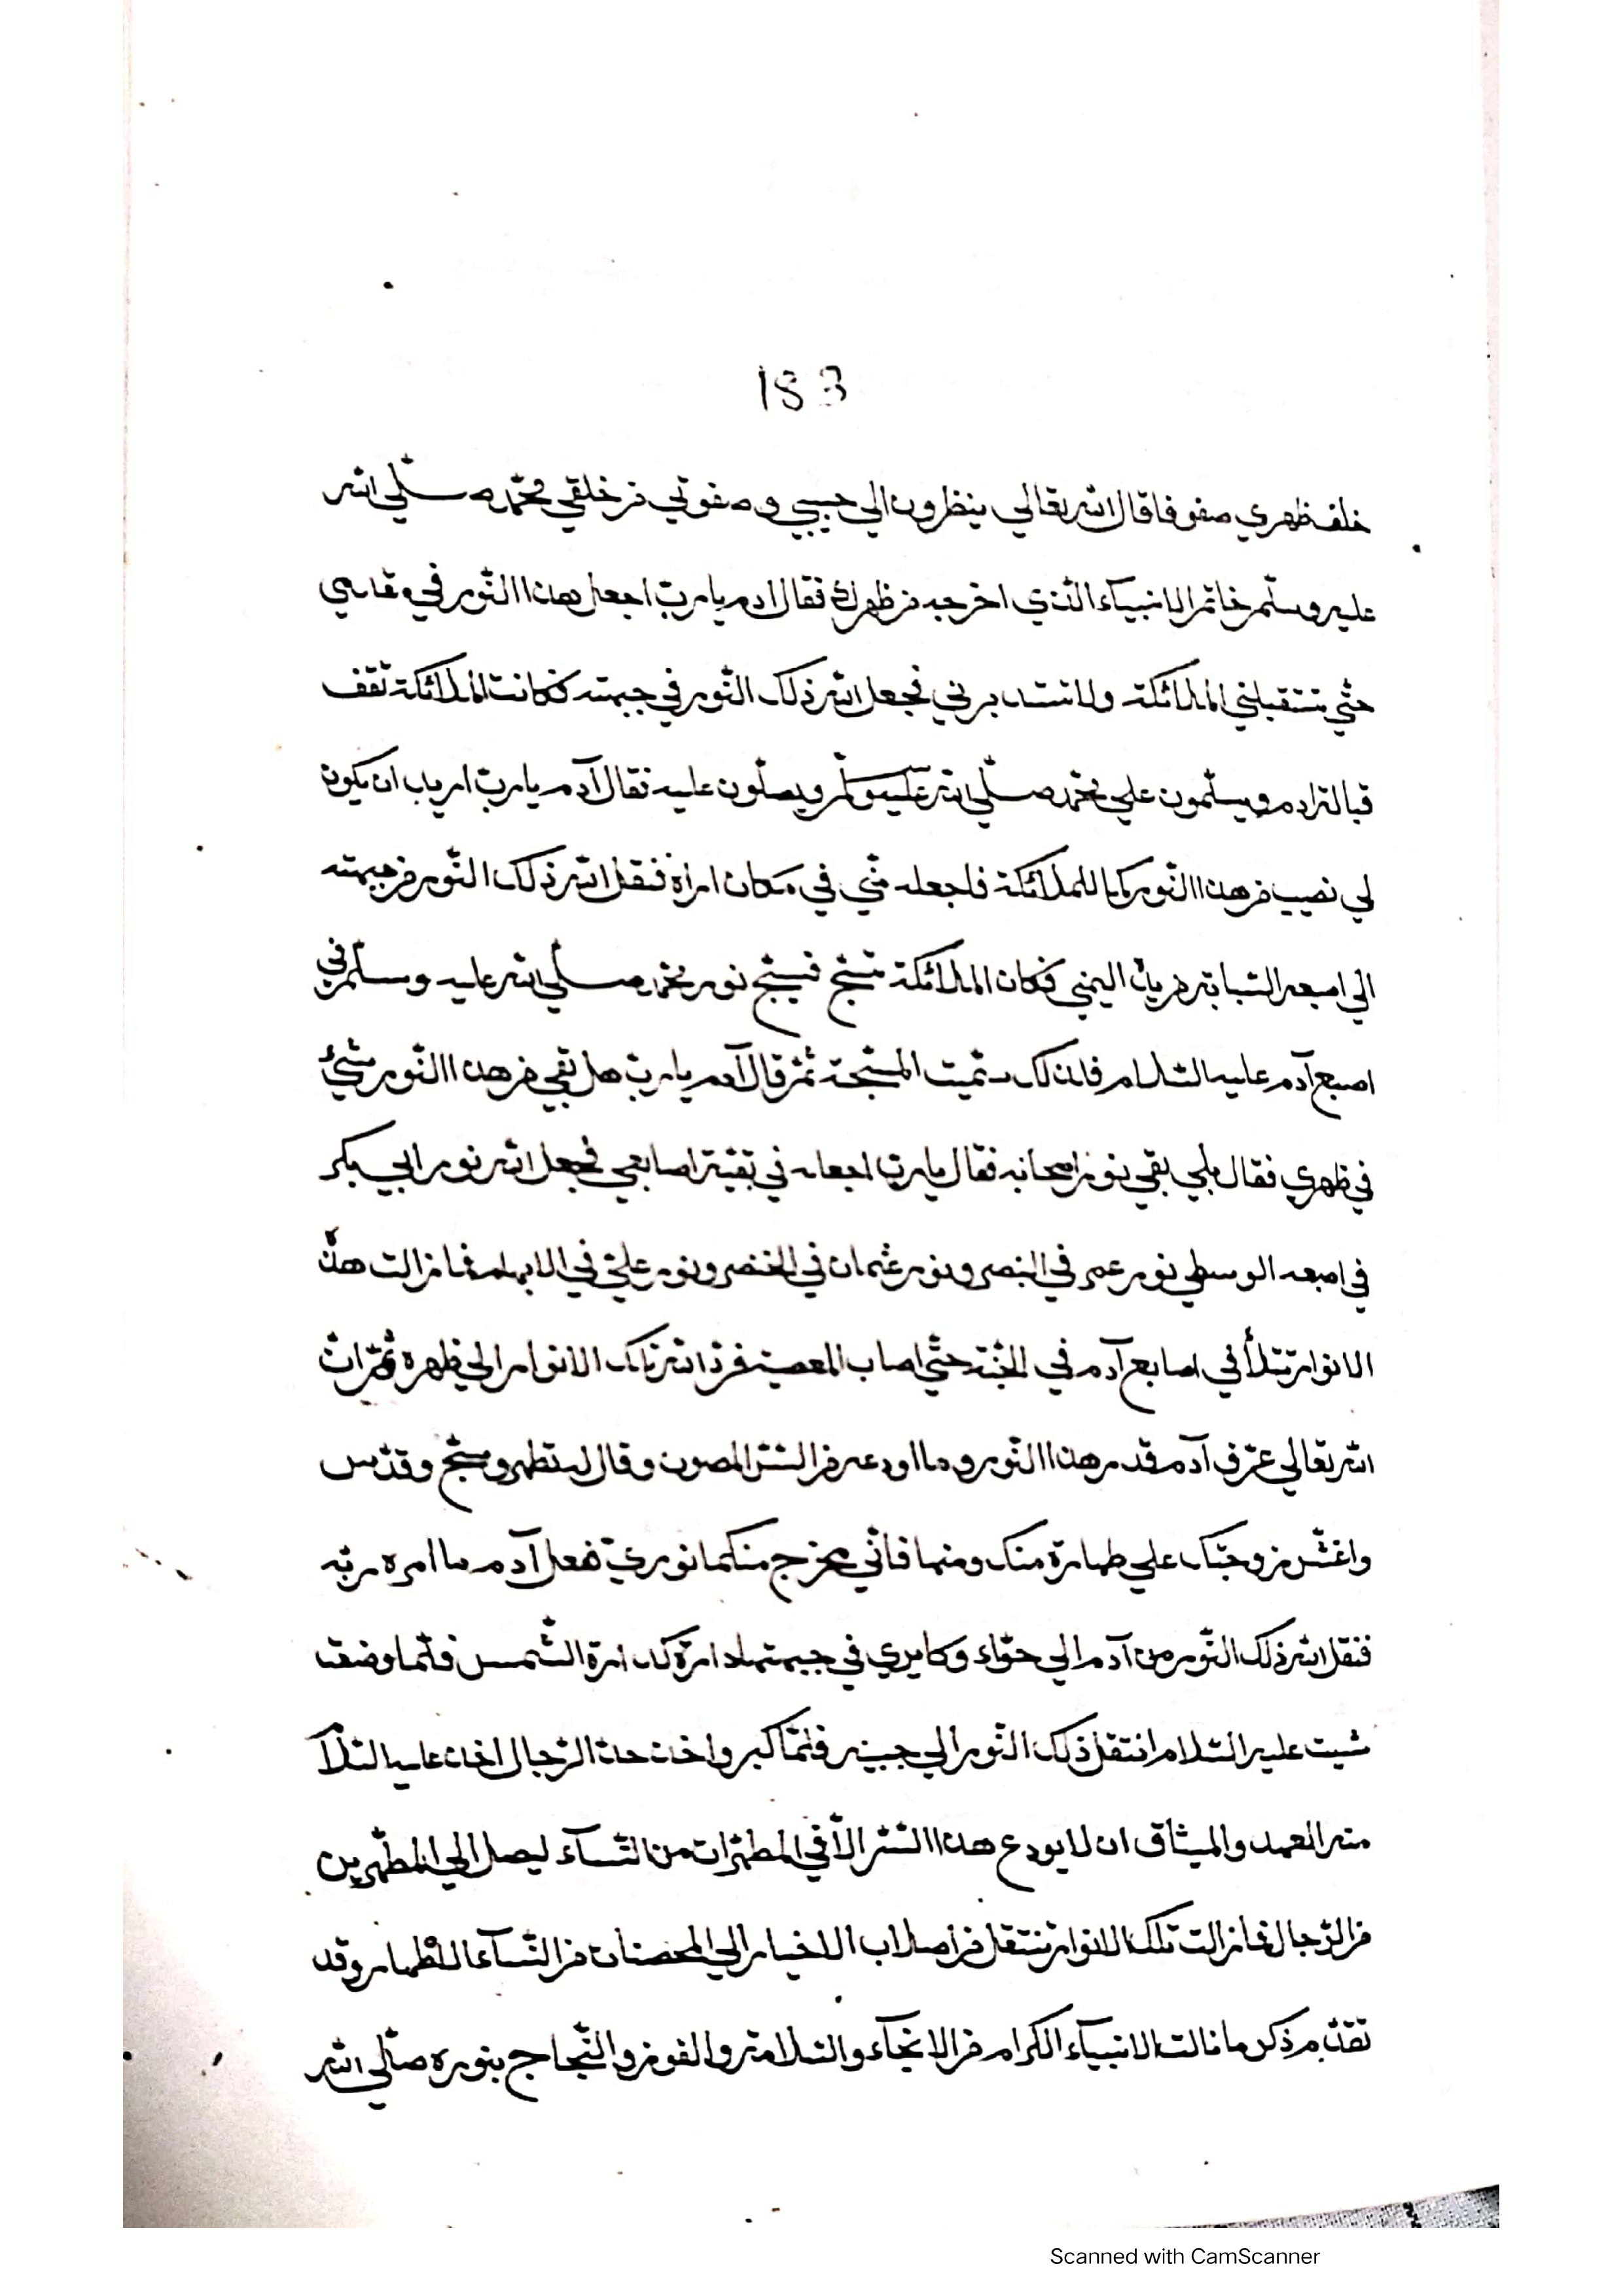 183
خلف ظهري صفوفا قال الله تعالي ينظرون الي حبيبي وصفوتي من خلقي محمّد صلّي الله
عليه وسلّم خاتم الانبيآء الّذي اخرجه من ظهرك فقال ادم يا ربّ اجعل هذا النّور في مقامي
حتّي تستقبلني الملائكة ولا تستدبرني فجعل الله ذلك النّور في جبهته فكانت الملائكة تقف
قبالة ادم ويسلّمون علي محمّد صلّي الله عليه وسلّم ويصلّون عليه فقال آدم يا ربّ اريد ان يكون
لي نصيب من هذا النّور كما للملائكة فاجعله منّي في مكان اراه فنقل الله ذلك النّور من جبهته
الي اصبعه السّبابة من يده اليمني فكان الملائكة تسبّح فيسبّح نور محمّد صلّي الله عليه وسلّم في
اصبع آدم عليه السّلام فلذلك سمّيت المسبّحة ثمّ قال آدم يا ربّ هل بقي من هذا النّور شيئ
في ظهري فقال بلي بقي نور اصحابه فقال يا ربّ اجعله في بقيّة اصابعي فجعل الله نور ابي بكر
في اصبعه الوسطي نور عمر في البنصر ونور عثمان في الخنصر ونور عليّ في الابهام فما زالت هذه
الانوار تتلأ في اصابع آدم في الجنّة حتّي اصاب المعصية فردّ الله تلك الانوار الي ظهره ثمّ انّ
الله تعالي عرّف آدم قدر هذا النّور وما اودعه من السّرّ المصون وقال له تطهر وسبّح وقدّس
واغشّ زوجتك علي طهارة منك ومنها فانّي مخرج منكما نوري ففعل آدم ما امره ربّه
فنقل الله ذلك النّور من آدم الي حوّاء وكا يري في جبهتها دارة كدارة الشّمس فلمّا وضعت
شيت عليه السّلام انتقل ذلك النّور الي جبينه فلمّا كبر واخذ حدّ الرّجال اخذ عليه السّلآ
منه العهد والميثاق ان لا يودع هذا السّرّ الاّ في المطهّرات من النّسآء ليصل الي المطهّرين
من الرّجال فما زالت تلك الانوار تنتقل من اصلاب الاخيار الي المحصنات من النّسآء الاطهار وقد
تقدّم ذكر ما نالت الانبيآء الكرام من الانجآء والسّلامة والفوز والنّجاح بنوره صلّي الله
Scanned with CamScanner